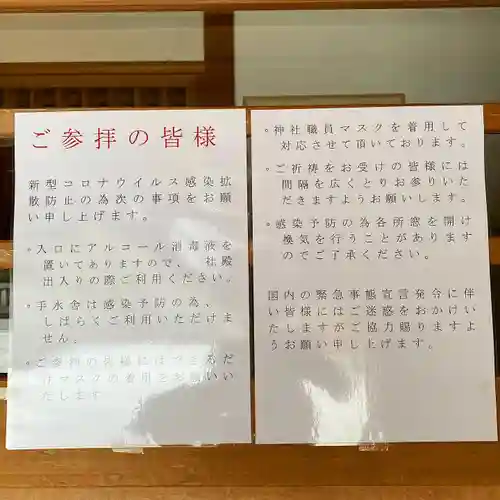 ご参拝の皆様
新型コロナウイルス感染拡
散防止の為次の事項をお願
い申し上げます。
。入口にアルコール消毒液を
置いてありますので、 社殿
出入りの際ご利用ください。
。手水舎は感染予防の為、
しばらくご利用いただけま
せん。
。ご参拝の皆様にはできるだ
けマスクの着用をお願いい
たします
。神社職員マスクを着用して
対応させて頂いております。
。ご祈祷をお受けの皆様には
間隔を広くとりお参りいた
だきますようお願いします。
。感染予防の為各所窓を開け
換気を行うことがあります
のでご了承ください。
国内の緊急事態宣言発令に伴
い皆様にはご迷惑をおかけい
たしますがご協力賜りますよ
うお願い申し上げます。